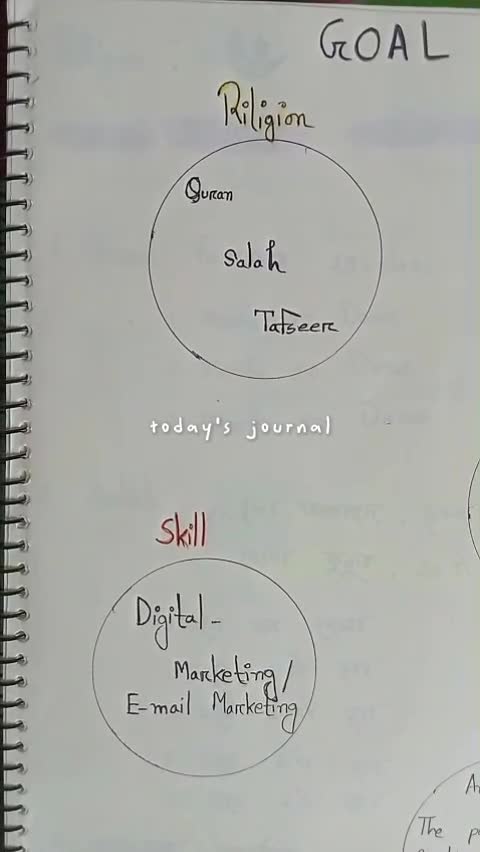 GOAL
Riligion
Quran
Salah
Tafseer
today's journal
Skill
Digital -
Marketing/
E-mail Marketing
The